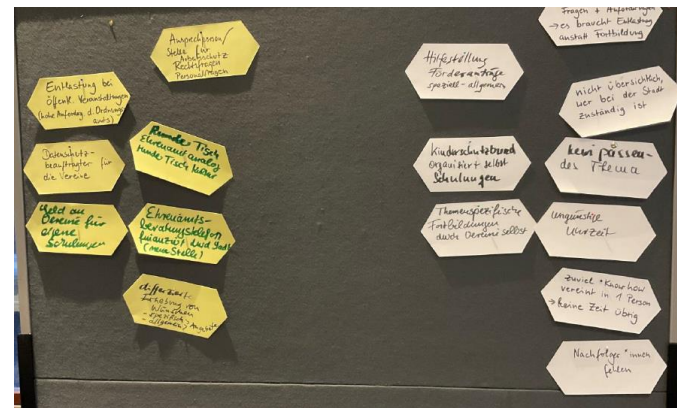 Ansprechperson/
Stelle für
Rechtsfragen
Personalfragen
Entlastung bei
öffentl. Veranstaltungen
(hohe Anforderg. d. Ordnungs
amts)
Datenschutz-
beauftragter für
die Vereine
Geld an
Vereine für
eigene
Schulungen
Runder Tisch
Ehrenamt analog
runder Tisch
Ehrenamts-
beratungstelefon
finanziert und Stadt
(neue Stelle)
Erhebung von
Wünschen
- spezifisch
- allgemein
Angebote
Hilfestellung
Förderanträge
speziell - allgemein
Kinderschutzbund
organisiert selbst
Schulungen
Themenspezifische
Fortbildungen
durch Vereine selbst
Fragen + Anforderungen
→ es braucht Entlastung
anstatt Fortbildung
nicht übersichtlich,
wer bei der Stadt
zuständig ist
kein passen-
des Thema
ungünstige
Uhrzeit
zuviel "Knowhow
vereint in 1 Person
→ keine Zeit übrig
Nachfolger*innen
fehlen